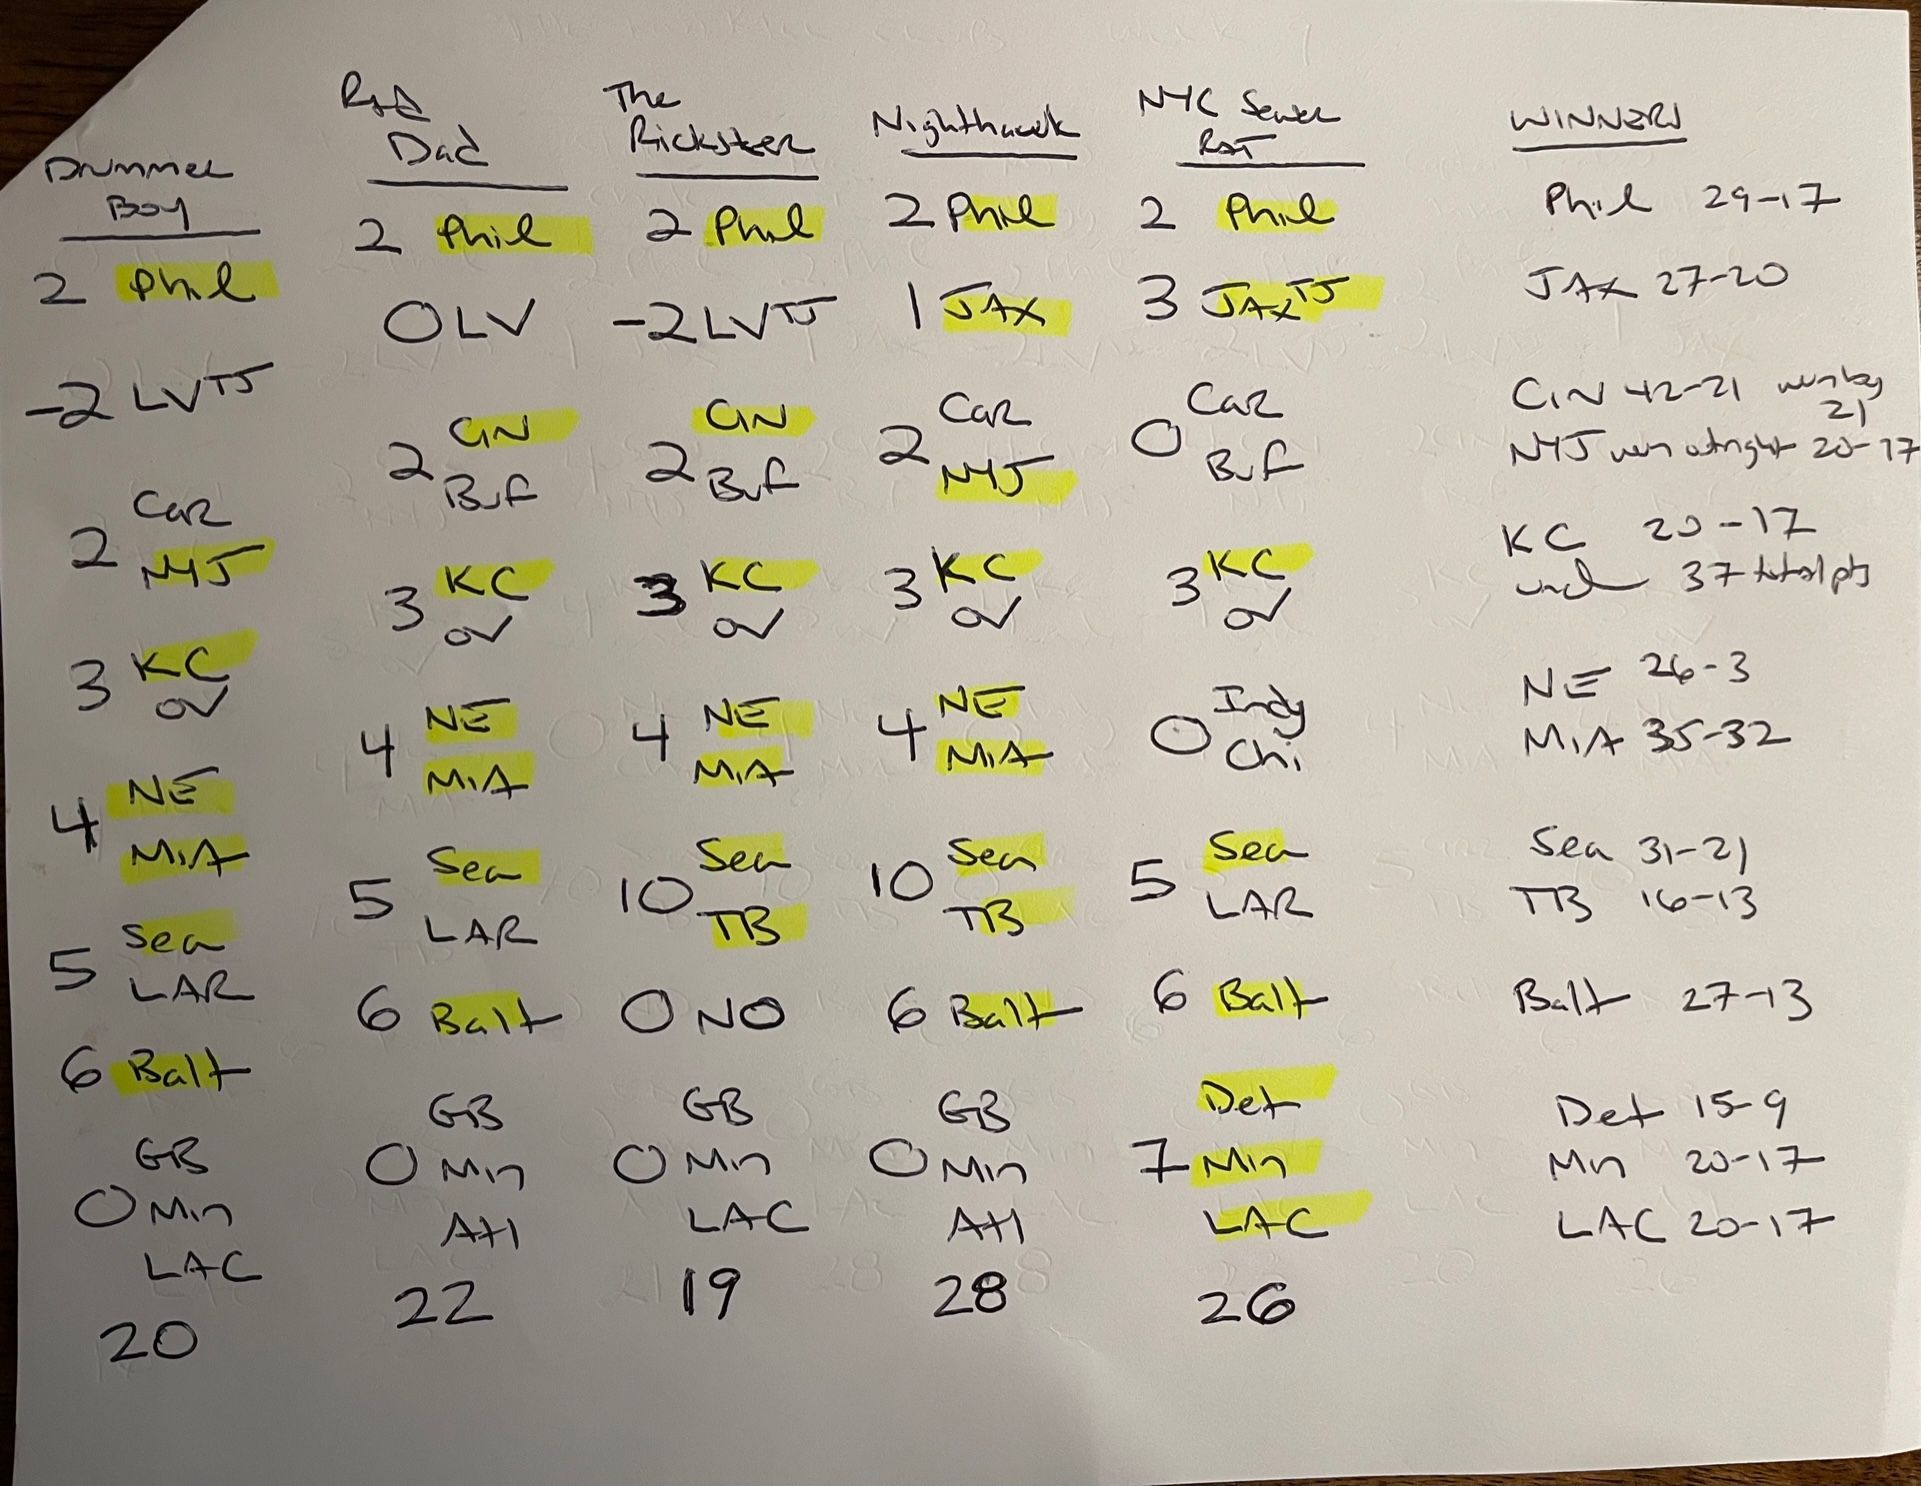 Drummer
Boy
2 Phil
-2 LV TJ
Car
2 NYJ
3 KC
OV
4 NE
MiA
5 Sea
LAR
6 Balt
GB
0 Min
LAC
20
Dad
2 Phil
0 LV
2 CiN
Buf
3 KC
OV
4 NE
MiA
5 Sea
LAR
6 Balt
GB
0 Min
Atl
22
The
Rickster
2 Phil
-2 LV TJ
2 CiN
Buf
3 KC
OV
4 NE
MiA
10 Sea
TB
0 NO
GB
0 Min
LAC
19
Nighthawk
2 Phil
1 JAX
2 Car
NYJ
3 KC
OV
4 NE
MiA
10 Sea
TB
6 Balt
GB
0 Min
Atl
28
NYC Sewer
RAT
2 Phil
3 JAX TJ
0 Car
Buf
3 KC
OV
0 Indy
Chi
5 Sea
LAR
6 Balt
Det
7 Min
LAC
26
WINNERS
Phil 29-17
JAX 27-20
CiN 42-21 win by
21
NYJ win outright 20-17
KC 20-17
und 37 total pts
NE 26-3
MiA 35-32
Sea 31-21
TB 16-13
Balt 27-13
Det 15-9
Min 20-17
LAC 20-17